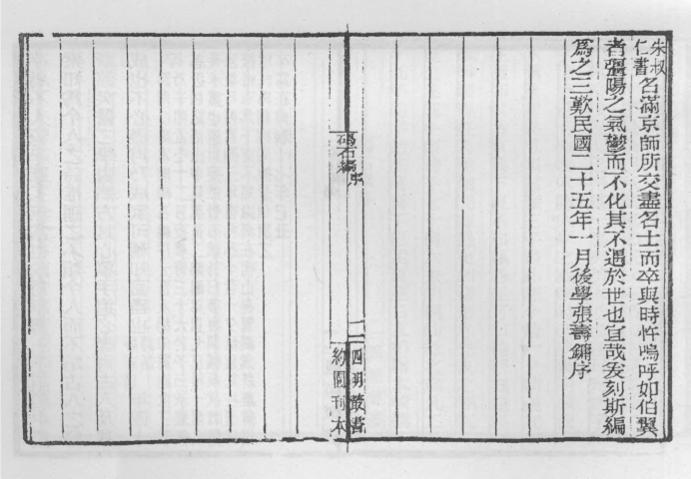 朱叔
仁書
名滿京師所交盡名士而卒與時忤嗚呼如伯翼
者彊陽之氣鬱而不化其不遇於世也宜哉爰刻斯編
為之三歎民國二十五年一月後學張壽鏞序
碣石編
序
二
四明叢書
約園刊本